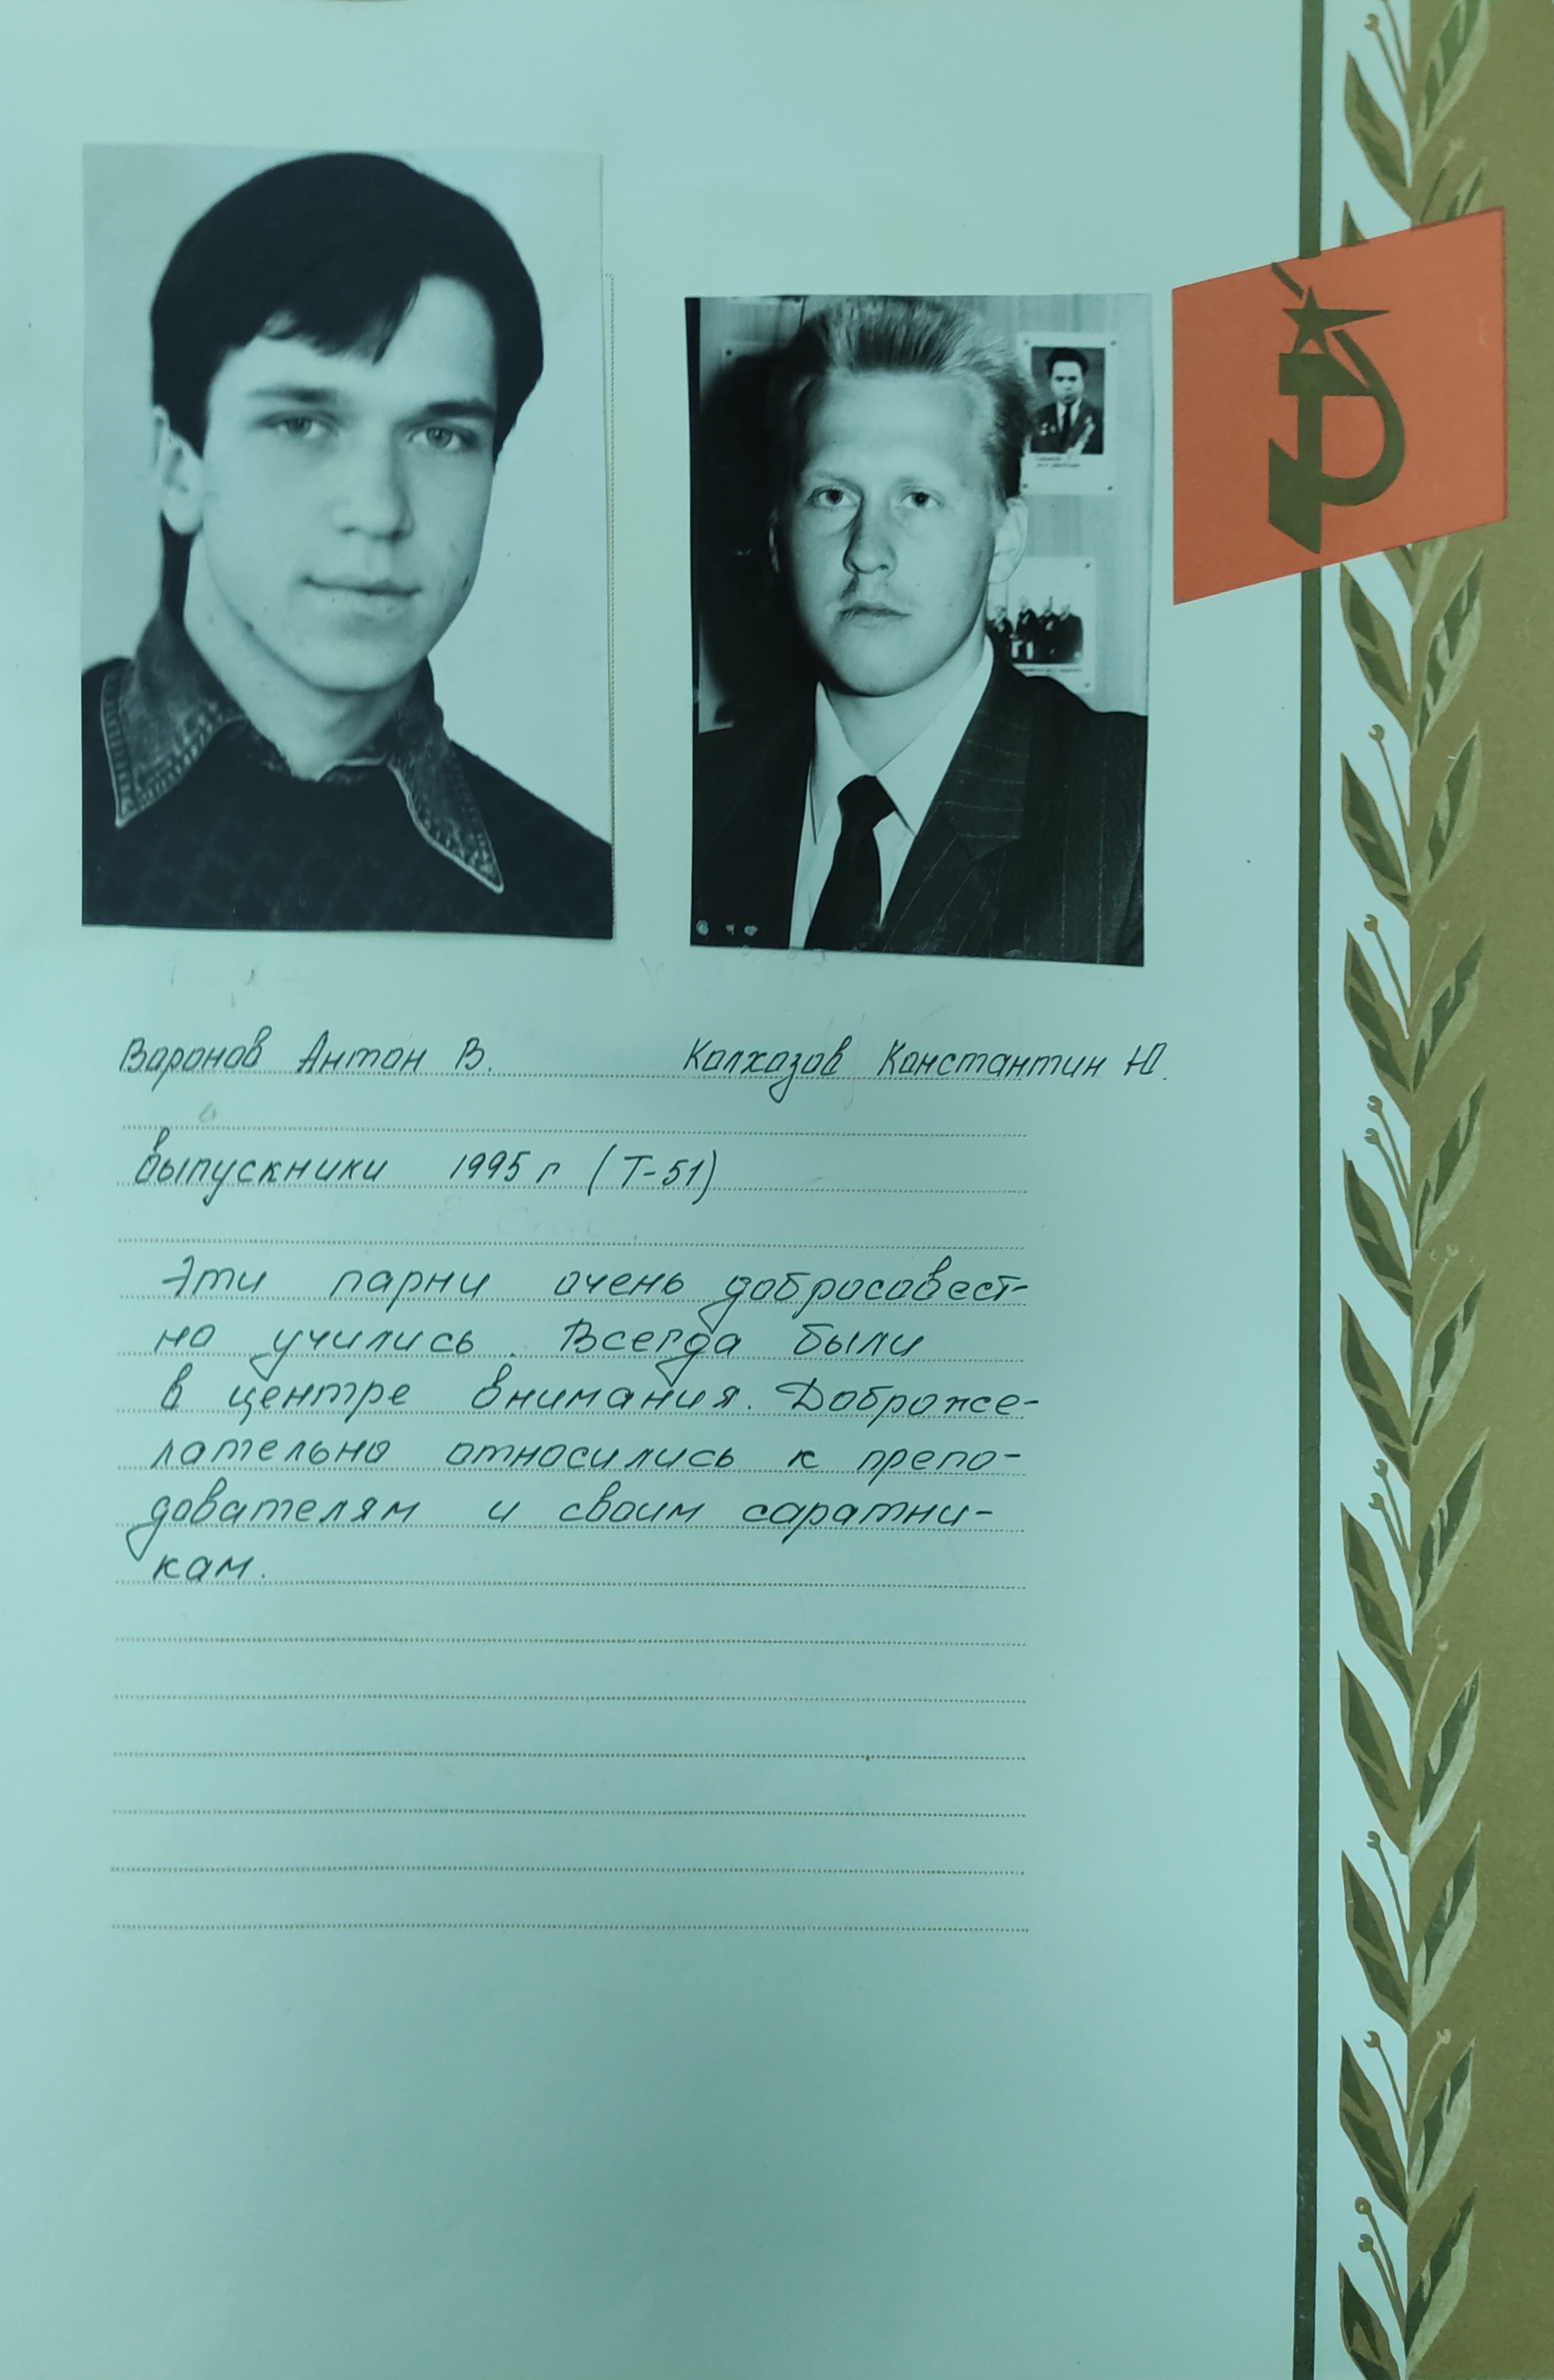 Воронов Антон В. Колхозов Константин Ю.
выпускники 1995 г (Т-51)
Эти парни очень добросовест-
но учились. Всегда были
в центре внимания. Доброже-
лательно относились к препо-
дователям и своим соратни-
кам.